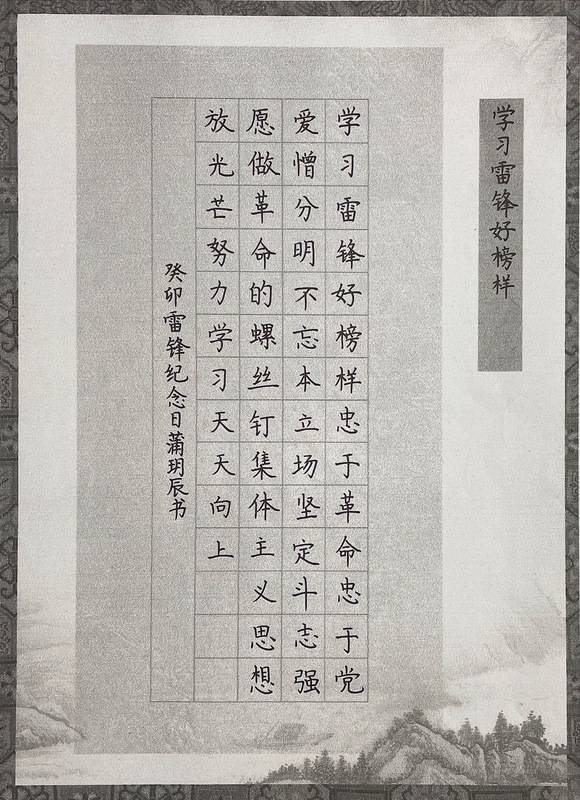 学习雷锋好榜样
学习雷锋好榜样忠于革命忠于党
爱憎分明不忘本立场坚定斗志强
愿做革命的螺丝钉集体主义思想
放光芒努力学习天天向上
癸卯雷锋纪念日蒲玥辰书